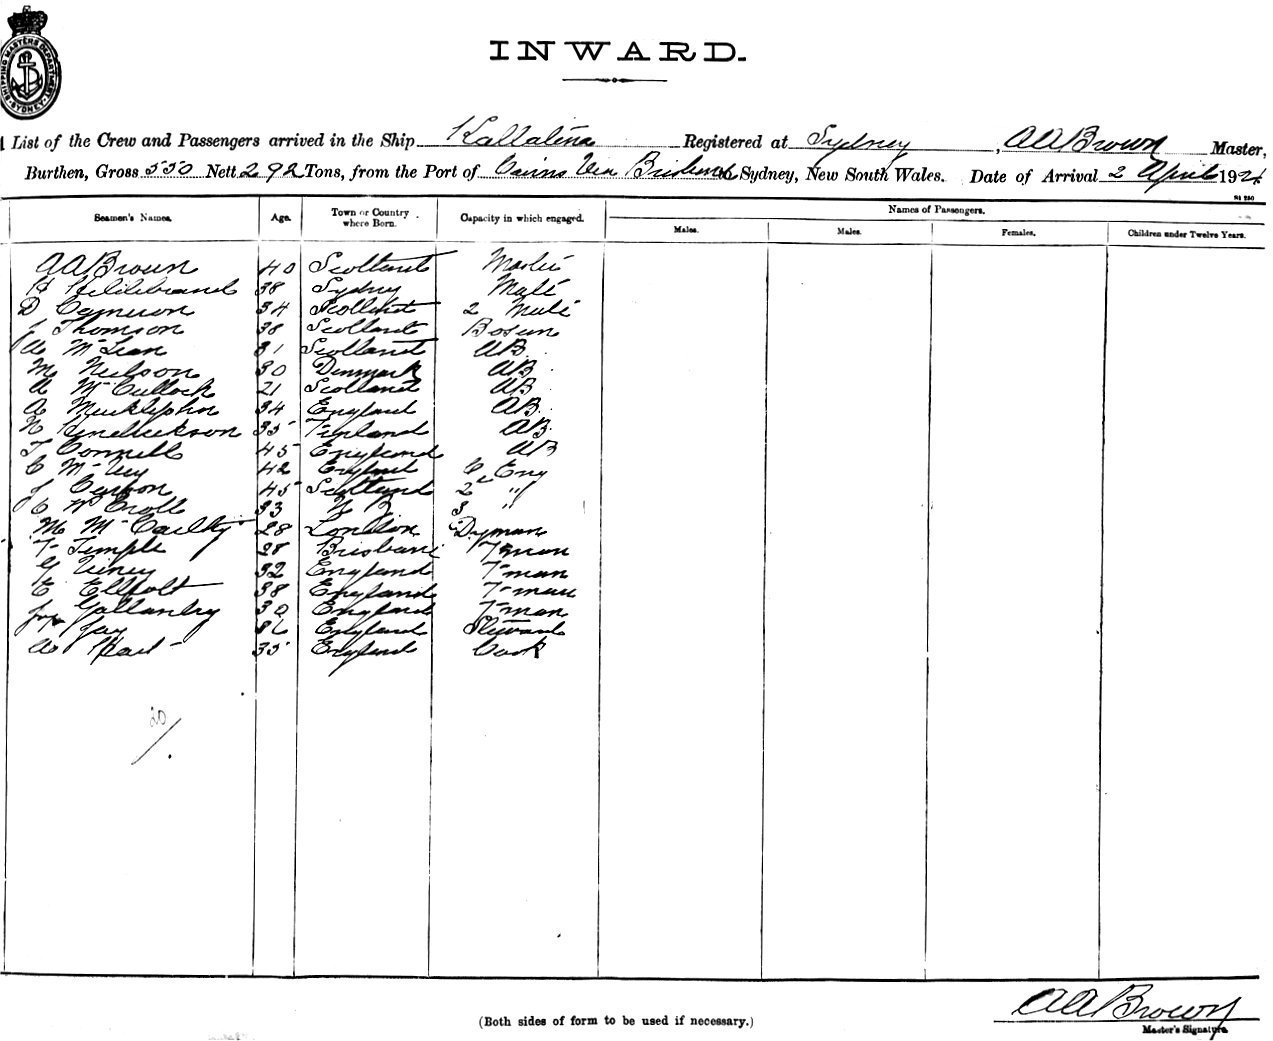 SHIPPING MASTERS DEPARTMENT SYDNEY
INWARD.
List of the Crew and Passengers arrived in the Ship Kallatina Registered at Sydney, AA Brown Master,
Burthen, Gross 550 Nett 292 Tons, from the Port of Cairns Via Brisbane to Sydney, New South Wales. Date of Arrival 2 April 192
Seamen's Names. Age. Town or Country where Born. Capacity in which engaged. Names of Passengers.
Males. Males. Females. Children under Twelve Years.
AA Brown 40 Scotland Master
H Hildebrand 38 Sydney Mate
D Cameron 34 Scotland 2 Mate
J Thomson 38 Scotland Bosun
A McLean 31 Scotland AB
M Neilson 30 Denmark AB
A McCullock 21 Scotland AB
A 34 England AB
N 35 Finland AB
T Connell 45 England AB
C 42 England C Eng
J 45 Scotland 2 "
C W Croll 33 N B 3 "
M McCaulty 28 London Dyman
T Temple 28 Brisbane Fman
G Viney 32 England Fman
E 38 England Fman
Jas Gallantry 30 England Fman
Jay England Steward
A 35 England Cook
20
AA Brown
(Both sides of form to be used if necessary.)
Master's Signature.